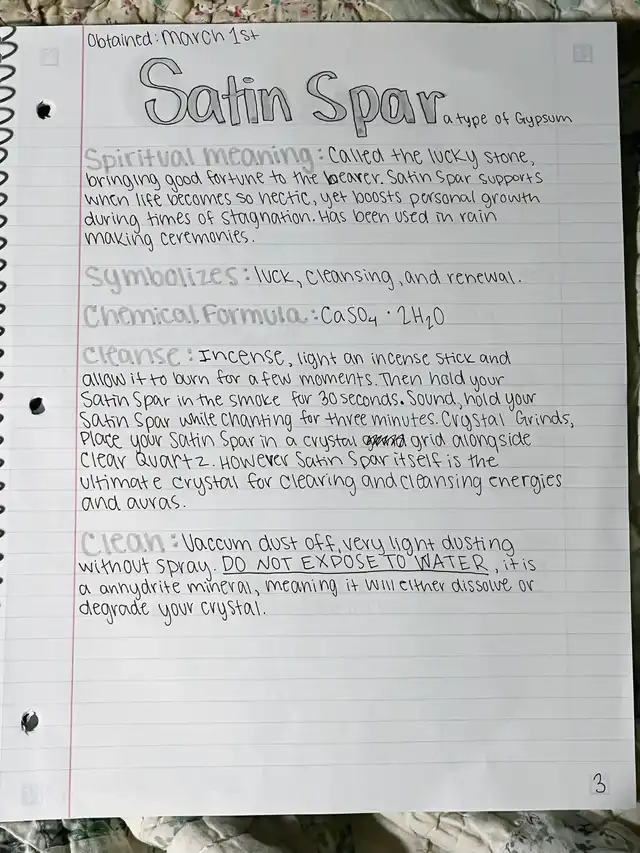 Obtained: March 1st
Satin Spar a type of Gypsum
Spiritual meaning: Called the lucky stone,
bringing good fortune to the bearer. Satin Spar supports
when life becomes so hectic, yet boosts personal growth
during times of stagnation. Has been used in rain
making ceremonies.
Symbolizes: luck, cleansing, and renewal.
Chemical Formula: CaSO₄ · 2H₂O
Cleanse: Incense, light an incense stick and
allow it to burn for a few moments. Then hold your
Satin Spar in the smoke for 30 seconds. Sound, hold your
Satin Spar while chanting for three minutes. Crystal Grinds,
Place your Satin Spar in a crystal grid alongside
Clear Quartz. However Satin Spar itself is the
ultimate crystal for clearing and cleansing energies
and auras.
Clean: Vaccum dust off, very light dusting
without spray. DO NOT EXPOSE TO WATER, it is
a anhydrite mineral, meaning it will either dissolve or
degrade your crystal.
3